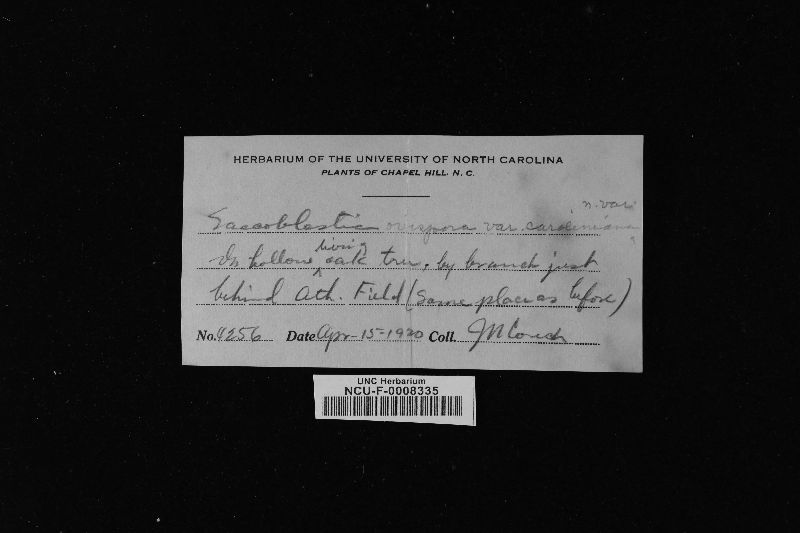 HERBARIUM OF THE UNIVERSITY OF NORTH CAROLINA
PLANTS OF CHAPEL HILL, N. C.
n. var.
Saccoblastia ovispora var. caroliniana
In hollow living oak tree, by branch just
behind Ath. Field (same place as before)
No. 4256 Date Apr-15-1920 Coll. JN Couch
UNC Herbarium
NCU-F-0008335